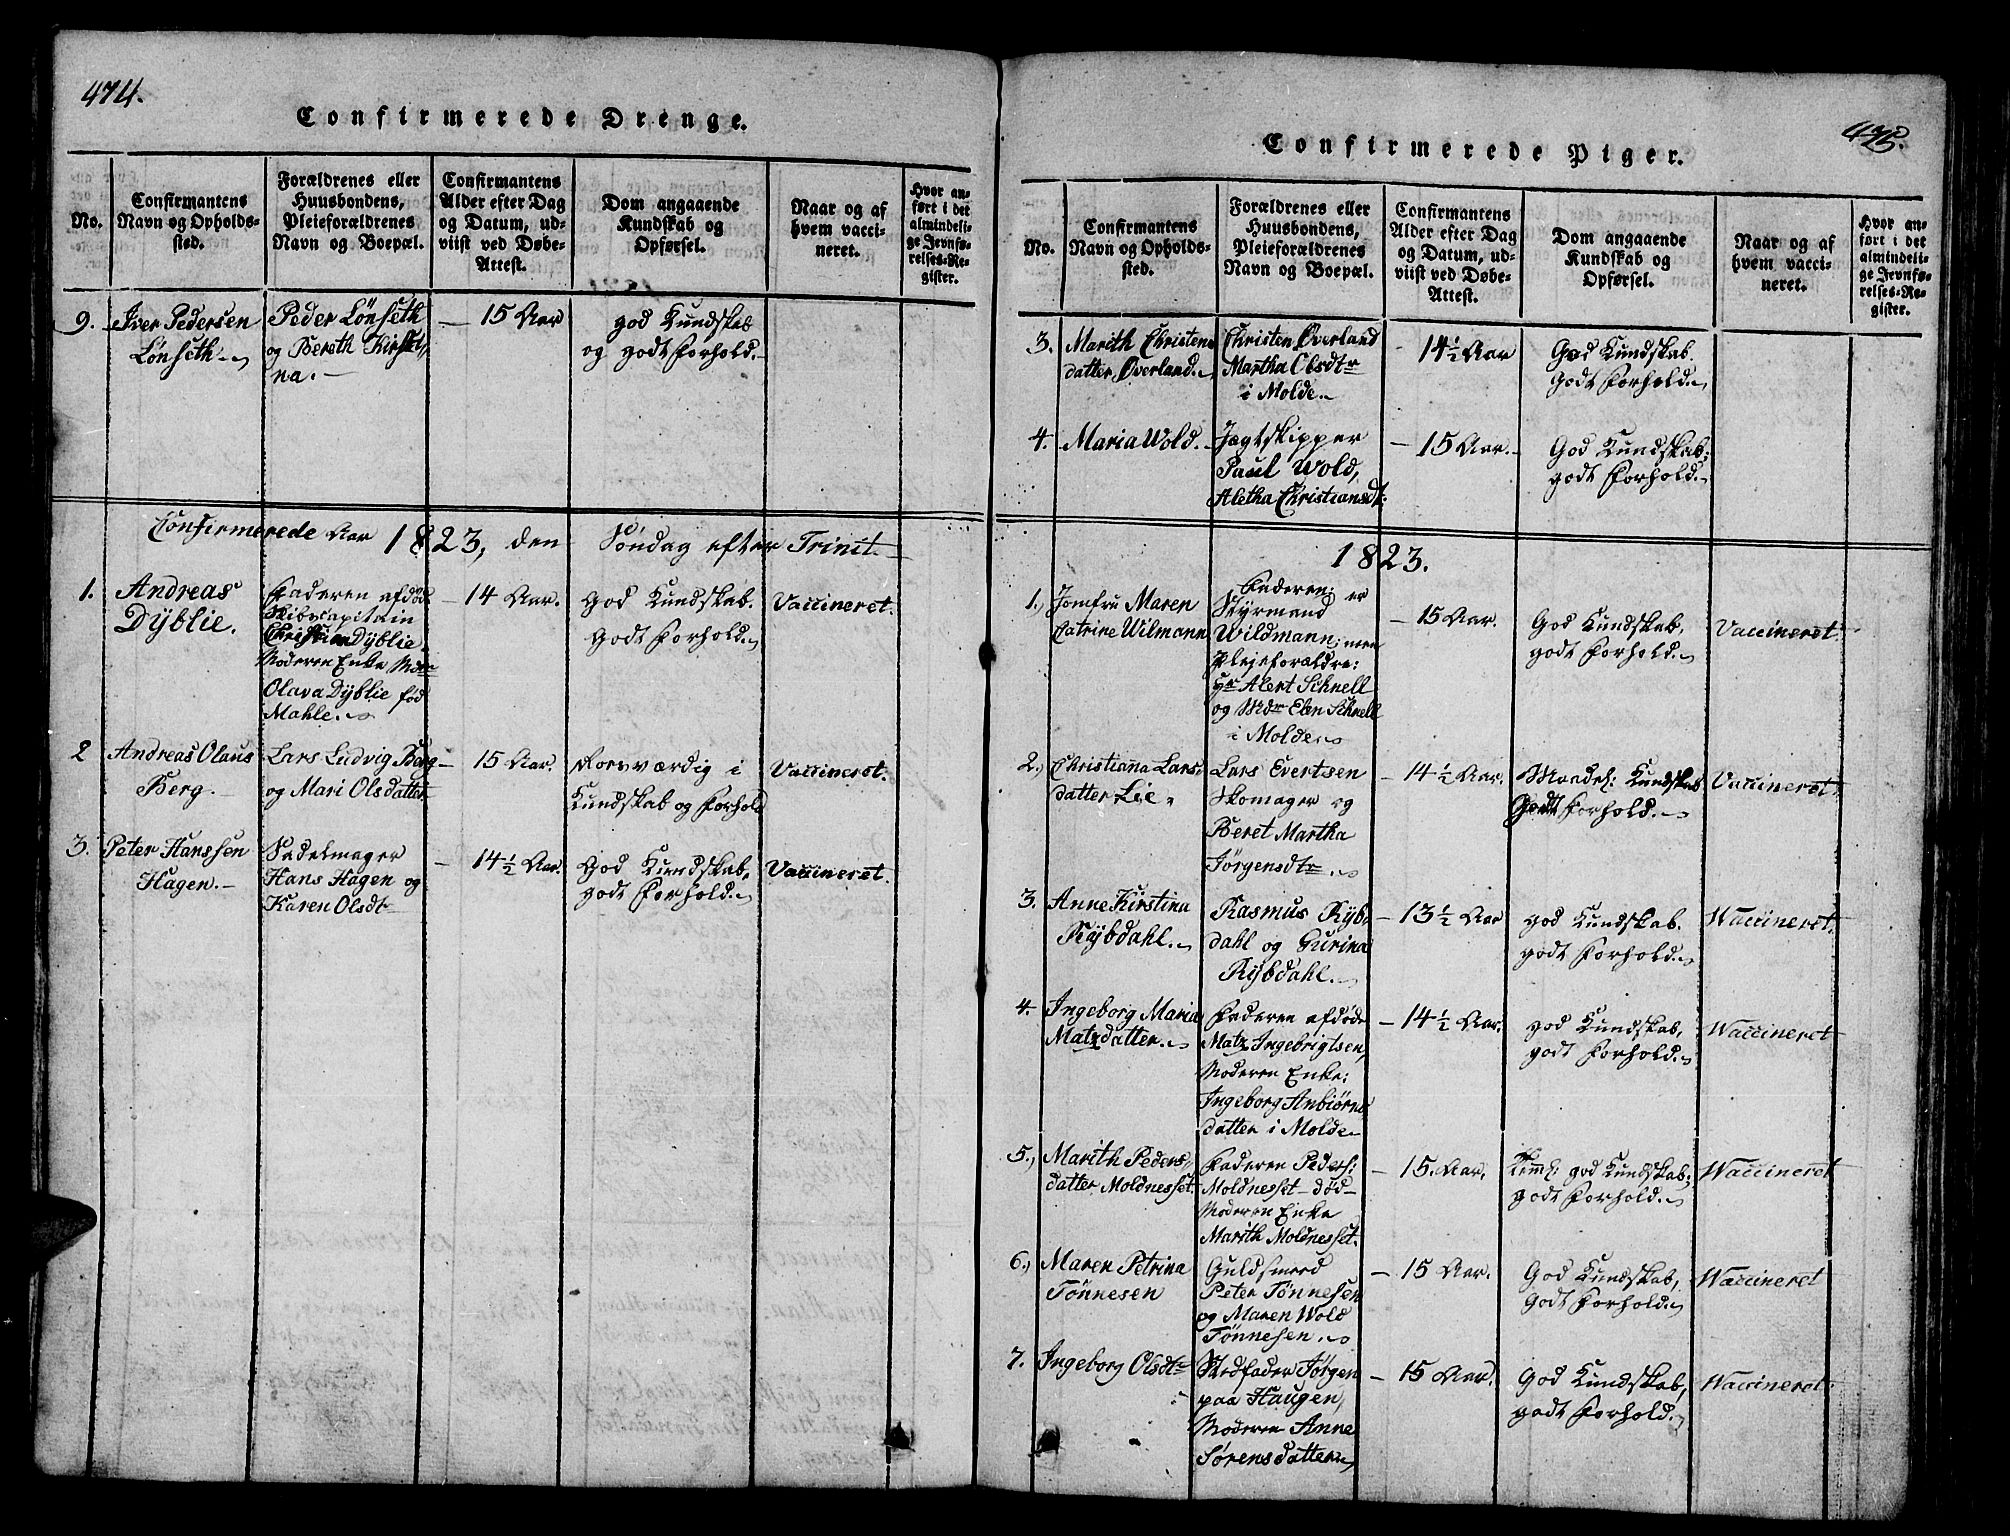 474.
Confirmerede Drenge.
No.
Confirmantens
Navn og Opholds-
sted.
Forældrenes eller
Huusbondens,
Pleieforældrenes
Navn og Boepæl.
Confirmantens
Alder efter Dag
og Datum, ud-
viist ved Døbe-
Attest.
Dom angaaende
Kundskab og
Opførsel.
Naar og af
hvem vacci-
neret.
Hvor an-
ført i det
almindeli-
ge Jevnfø-
relses-Re-
gister.
9.
Iver Pedersen
Lönseth.
Peder Lönseth
og Bereth Kirsti-
na.
15 Aar
god Kundskab
og godt Forhold.
Confirmerede Aar 1823, den Søndag efter Trinit.
1.
Andreas
Dÿblie.
Faderen afdöd
Skibscapitain
Christian Dÿblie.
Moderen Enke Mdm
Olava Dÿblie fød
Mahle.
14 Aar.
god Kundskab.
godt Forhold.
Vaccineret.
2
Andreas Olaus
Berg.
Lars Ludvig Berg
og Mari Olsdatter
15 Aar.
Roesværdig i
Kundskab og Forhold
Vaccineret.
3.
Peter Hanssen
Hagen.
Sadelmager
Hans Hagen og
Karen Olsdtr
14½ Aar.
god Kundskab,
godt Forhold.
Vaccineret.
475.
Confirmerede Piger.
No.
Confirmantens
Navn og Opholds-
sted.
Forældrenes eller
Huusbondens,
Pleieforældrenes
Navn og Boepæl.
Confirmantens
Alder efter Dag
og Datum, ud-
viist ved Døbe-
Attest.
Dom angaaende
Kundskab og
Opførsel.
Naar og af
hvem vacci-
neret.
Hvor an-
ført i det
almindeli-
ge Jevnfø-
relses-Re-
gister.
3.
Marith Christens
datter Øverland.
Christen Øverland
Martha Olsdtr
i Molde.
14½ Aar
God Kundskab.
Godt Forhold.
4.
Maria Wold.
Jægtskipper
Paul Wold,
Aletha Christiansdt:
15 Aar.
God Kundskab;
godt Forhold.
1823.
1.)
Jomfru Maren
Catrine Wilmann
Faderen: er
Styrmand
Wildmann; men
Plejeforældre:
Hr Alert Schnell
og Mdm Elen Schnell
i Molde.
15 Aar.
God Kundskab,
godt Forhold.
Vaccineret.
2.)
Christiana Lars-
datter Lie.
Lars Evertsen
Skomager og
Beret Martha
Jörgensdtr.
14½ Aar.
Maadel: Kundskab
Godt Forhold.
Vaccineret.
3.
Anne Kirstina
Rÿbdahl.
Rasmus Rÿb-
dahl og Gurina
Rÿbdahl.
13½ Aar
god Kundskab.
godt Forhold.
Waccineret.
4.
Ingeborg Maria
Matzdatter.
Faderen afdöde
Matz Ingebrigtsen,
Moderen Enke:
Ingeborg Anbiörns
datter i Molde
14½ Aar.
god Kundskab,
godt Forhold.
Waccineret
5.)
Marith Peders-
datter Moldnesset.
Faderen Peders:
Moldnesset-död-
Moderen Enke
Marith Moldnesset.
15. Aar.
god Kundskab;
godt Forhold.
Waccineret
6.)
Maren Petrina
Tönnesen
Guldsmed
Peter Tönnesen
og Maren Wold
Tönnesen.
15 Aar.
God Kundskab,
Godt Forhold.
Waccineret
7.
Ingeborg Olsdtr
Stedfader Jörgen
paa Haugen,
Moderen Anne
Sörensdatter
15 Aar.
God Kundskab,
godt Forhold.
Waccineret.